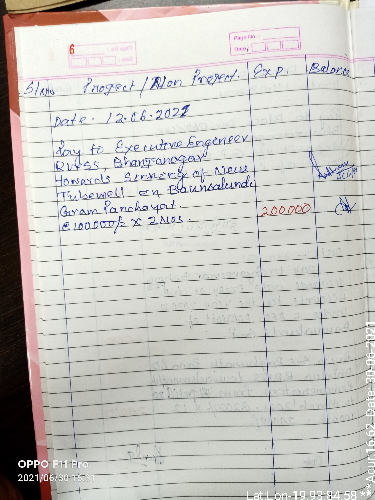 6
Page No.
Date
Sl/No Project / Non Project. Exp. Balance
Date - 12.06.2021
Pay to Executive Engineer
RWSS Bhanjanagar
towards Sinking of New
Tubewell in Baunsalundi
Gram Panchayat
@ 100000/- X 2 Nos. 200.000
OPPO F11 Pro
2021/06/30
Lat Lon-19.93,84.58